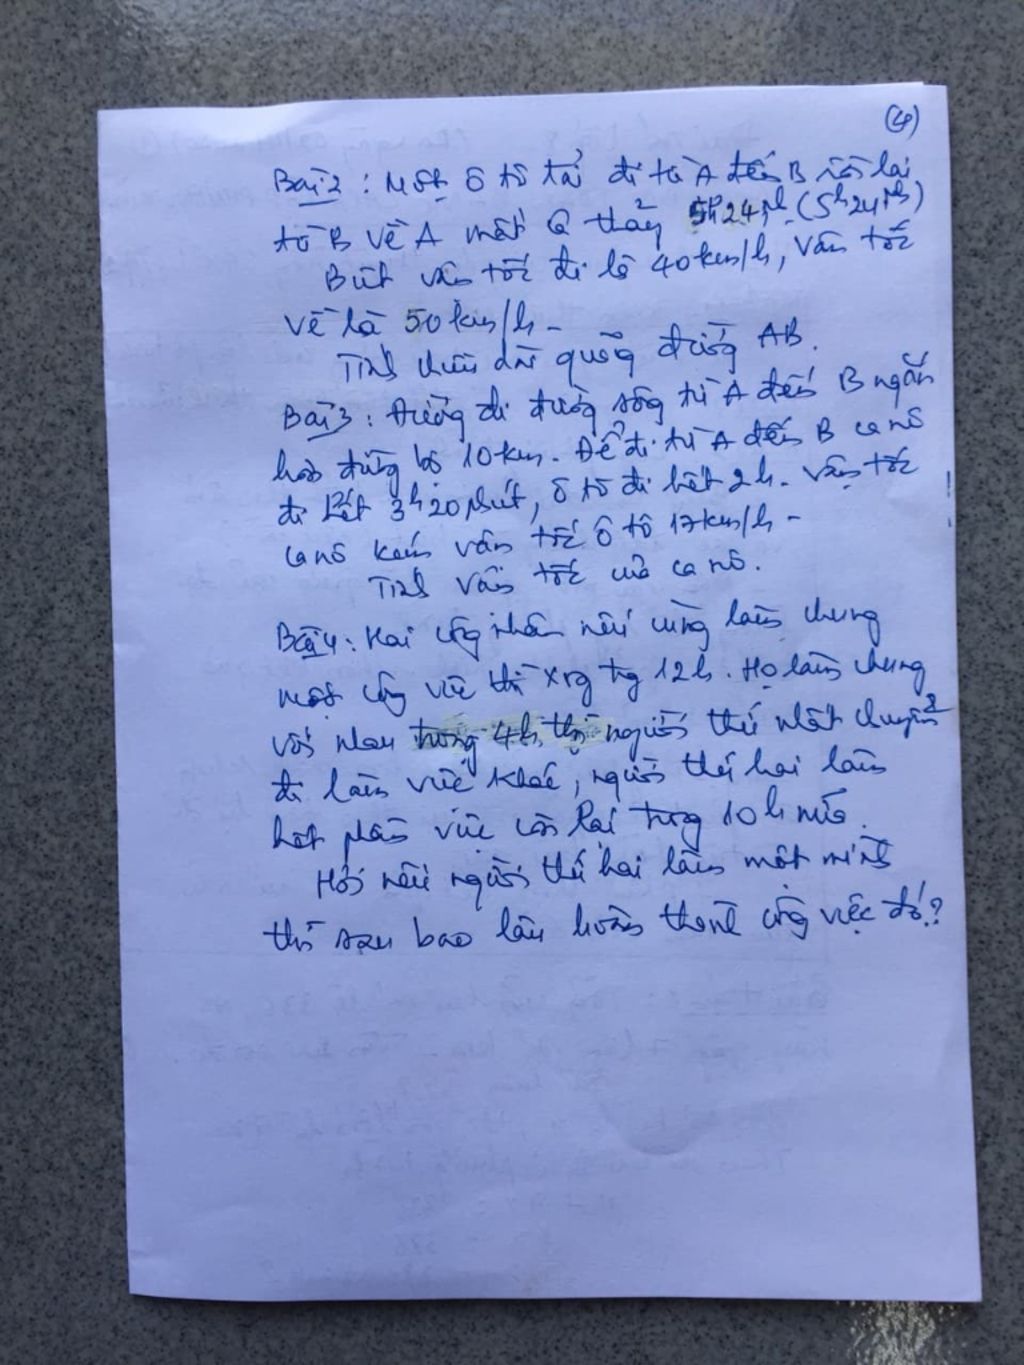 (4)
Bài 2: Một ô tô tải đi từ A đến B rồi lại
từ B về A mất cả thảy 5h24ph (5h24ph)
Biết vận tốc đi là 40km/h, vận tốc
về là 50km/h -
Tính chiều dài quãng đường AB.
Bài 3: Đường đi đường sông từ A đến B ngắn
hơn đường bộ 10km. Để đi từ A đến B ca nô
đi hết 3h20 phút, ô tô đi hết 2h. Vận tốc
ca nô kém vận tốc ô tô 17km/h -
Tính vận tốc của ca nô.
Bài 4: Hai công nhân nếu cùng làm chung
một công việc thì xog tg 12h. Họ làm chung
với nhau trong 4h thì người thứ nhất chuyển
đi làm việc khác, người thứ hai làm
hết phần việc còn lại trong 10h nữa.
Hỏi nếu người thứ hai làm một mình
thì sau bao lâu hoàn thành công việc đó?